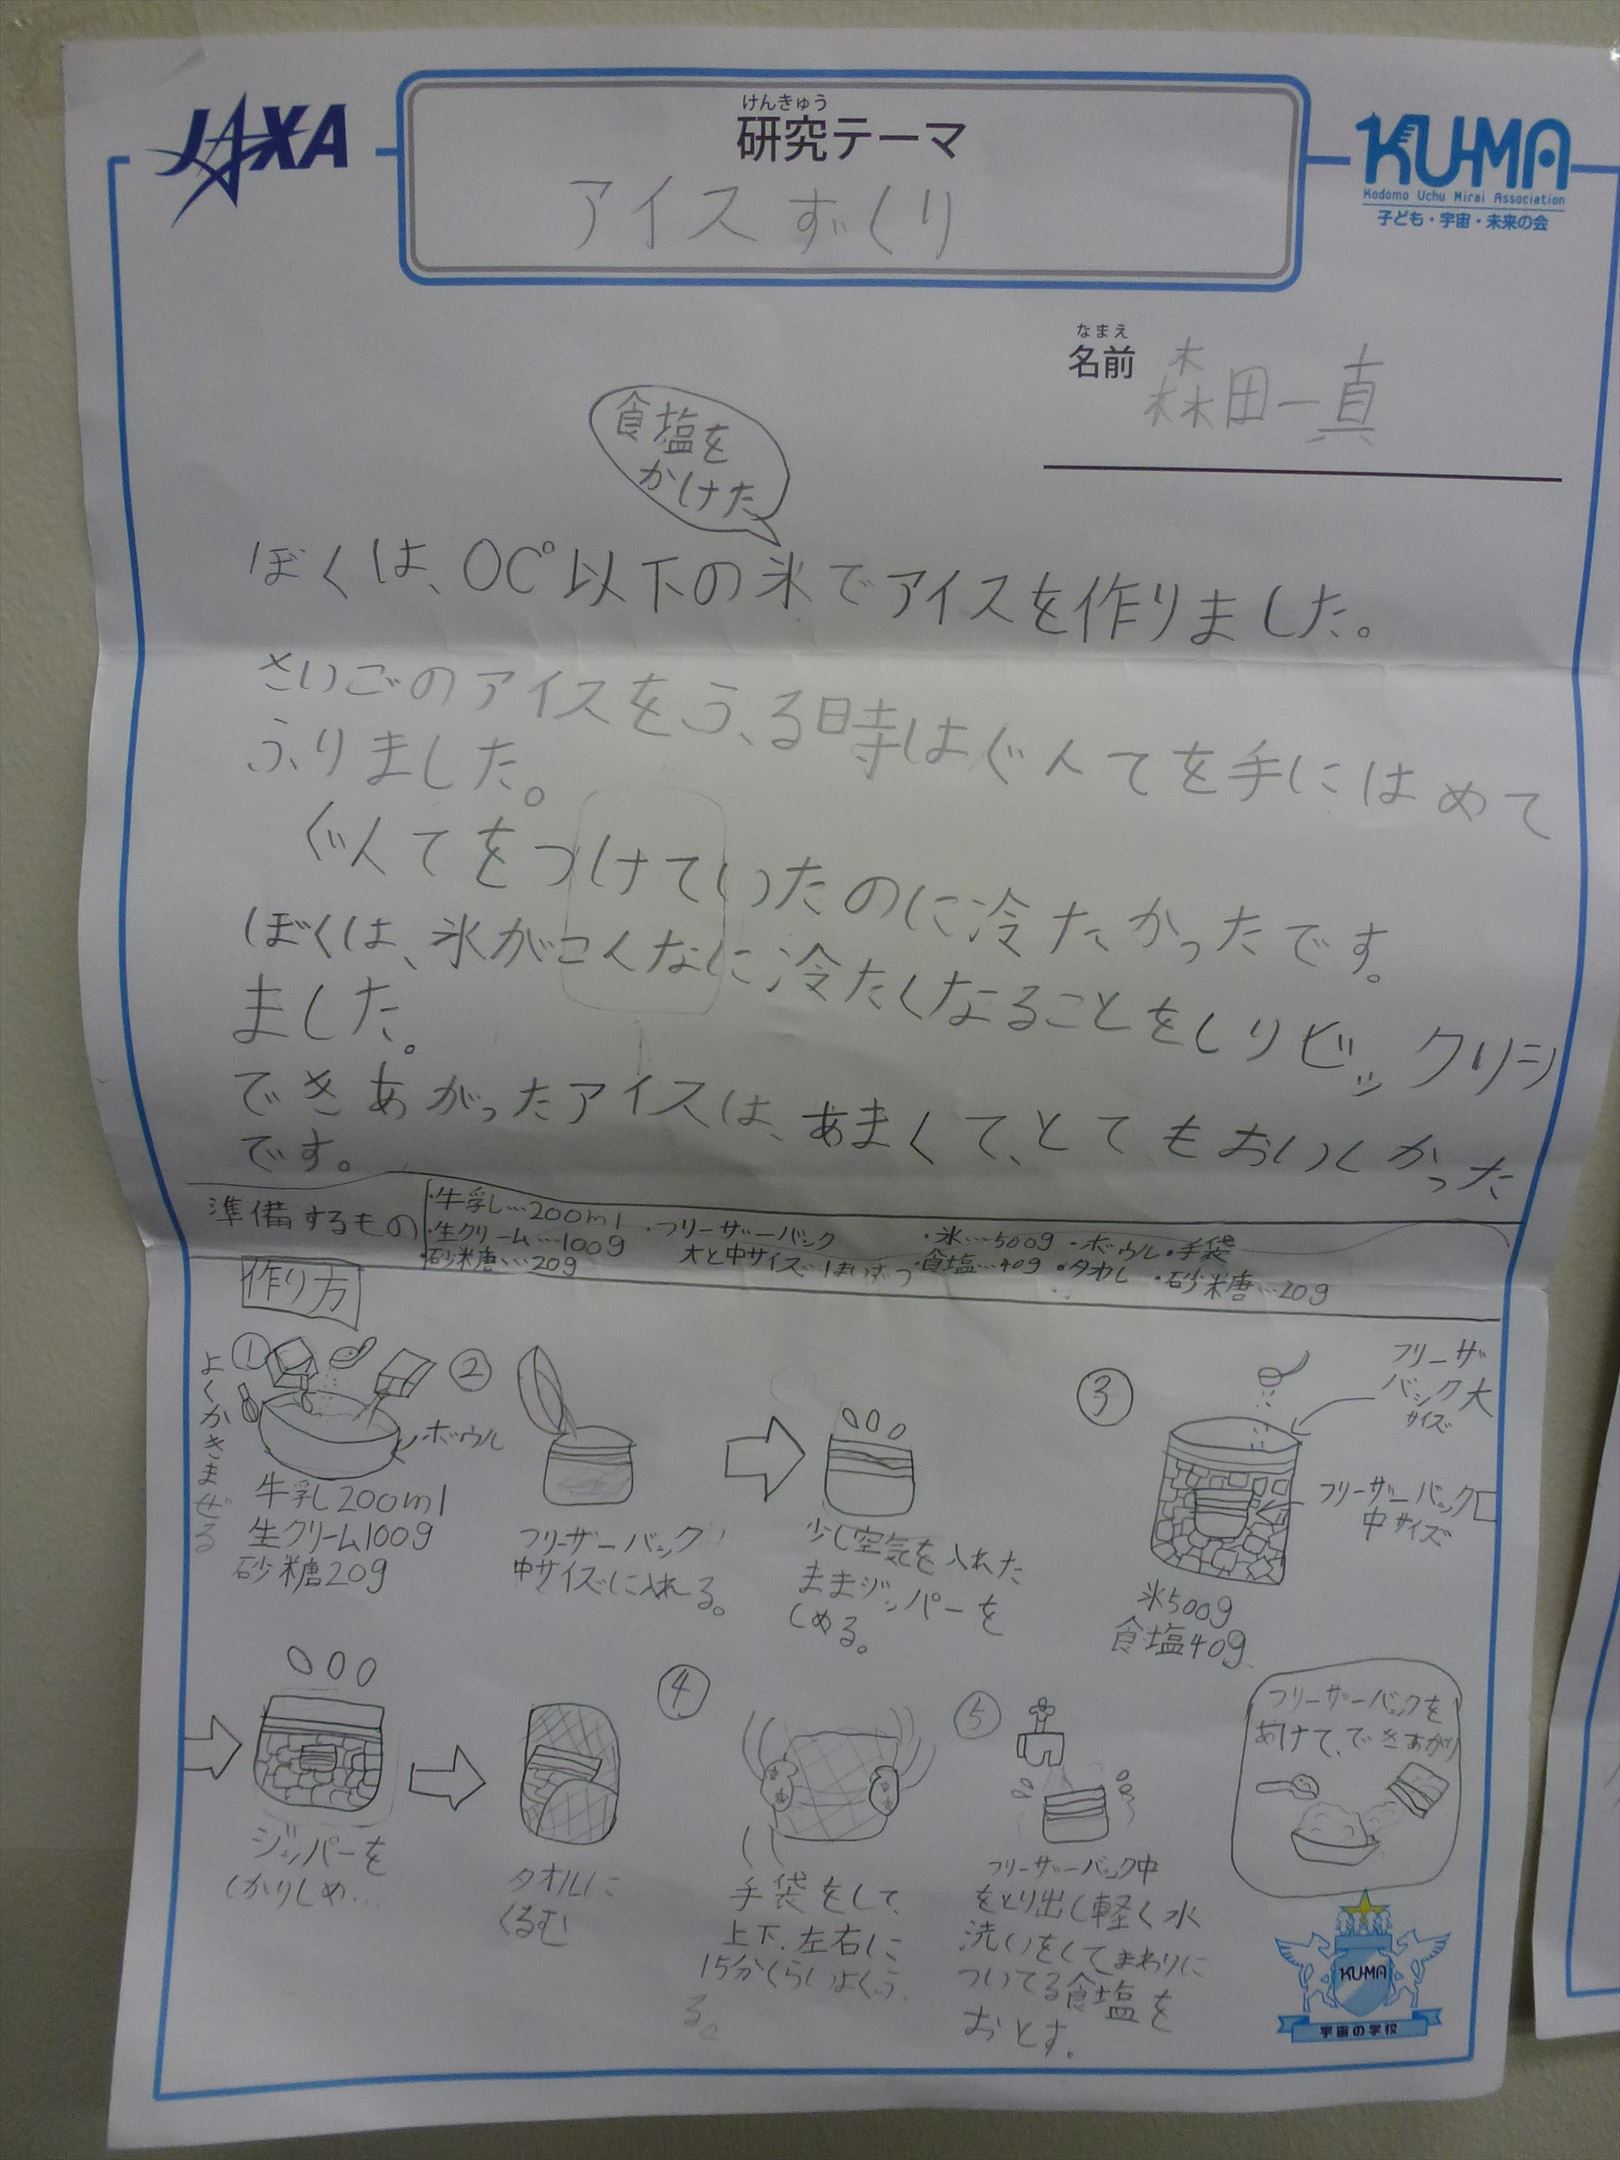 JAXA
けんきゅう
研究テーマ
アイスずくり
KU-MA
Kodomo Uchu Mirai Association
子ども・宇宙・未来の会
なまえ
名前
森田一真
食塩を
かけた
ぼくは、0C°以下の氷でアイスを作りました。
さいごのアイスをふる時はぐんてを手にはめて
ふりました。
ぐんてをつけていたのに冷たかったです。
ぼくは、氷がこんなに冷たくなることをしりビックリし
ました。
できあがったアイスは、あまくて、とてもおいしかった
です。
準備するもの
・牛乳…200ml
・生クリーム…100g
・砂糖…20g
・フリーザーバック
大と中サイズ1まいずつ
・氷…500g
・食塩…40g
・ボウル・手袋
・タオル
・砂糖…20g
作り方
①
よくかきまぜる
ボウル
牛乳200ml
生クリーム100g
砂糖20g
②
フリーザーバック
中サイズに入れる。
少し空気を入れた
ままジッパーを
しめる。
③
フリーザ
バック大
サイズ
フリーザーバック
中サイズ
氷500g
食塩40g
ジッパーを
しかりしめ…
タオルに
くるむ
④
手袋をして
上下、左右に
15分くらいよくふ
る。
⑤
フリーザーバック中
をとり出し軽く水
洗いをしてまわりに
ついてる食塩を
おとす。
フリーザーバックを
あけて、できあがり
KU-MA
宇宙の学校